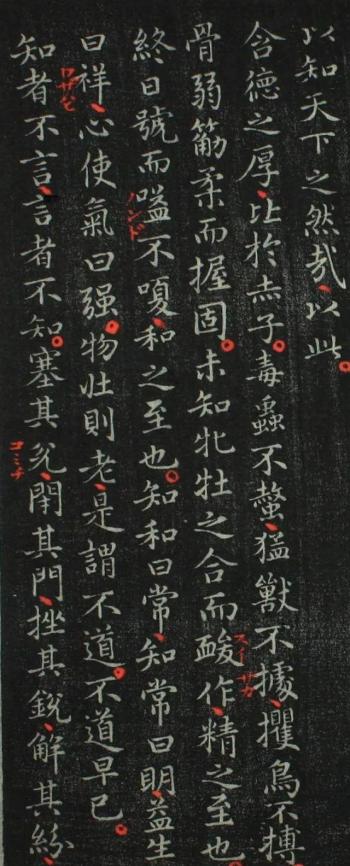 以知天下之然哉以此
含德之厚比於赤子毒蟲不螫猛獸不據攫鳥不搏
骨弱筋柔而握固未知牝牡之合而酸作精之至也
スイ サカ
終日號而嗌不嗄和之至也知和曰常知常曰明益生
ノンド
曰祥心使氣曰强物壯則老是謂不道不道早已
知者不言言者不知塞其兌閉其門挫其銳解其紛
コミチ